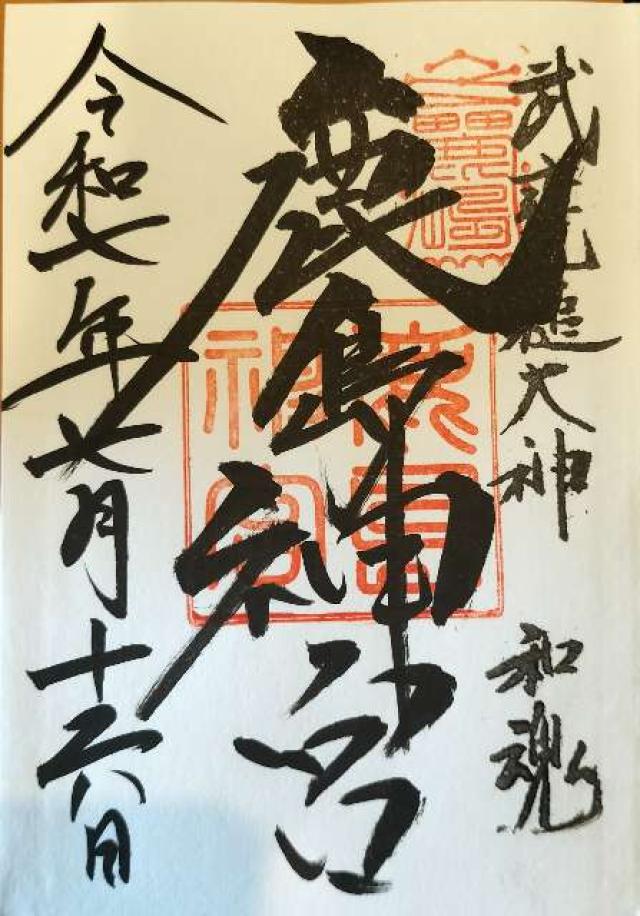 武甕槌大神 和魂
鹿島神宮
鹿島神宮
令和七年七月十六日